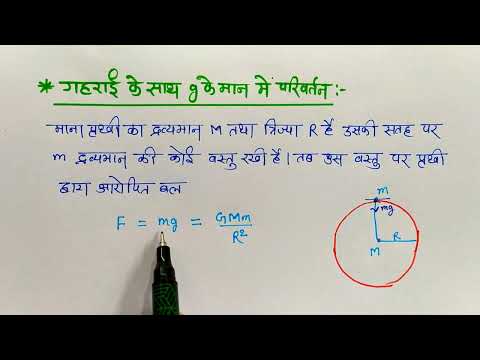 * गहराई के साथ g के मान में परिवर्तन :-
माना पृथ्वी का द्रव्यमान M तथा त्रिज्या R है उसकी सतह पर
m द्रव्यमान की कोई वस्तु रखी है। तब उस वस्तु पर पृथ्वी
द्वारा आरोपित बल
F = mg = GMm/R²
m
mg
R
M